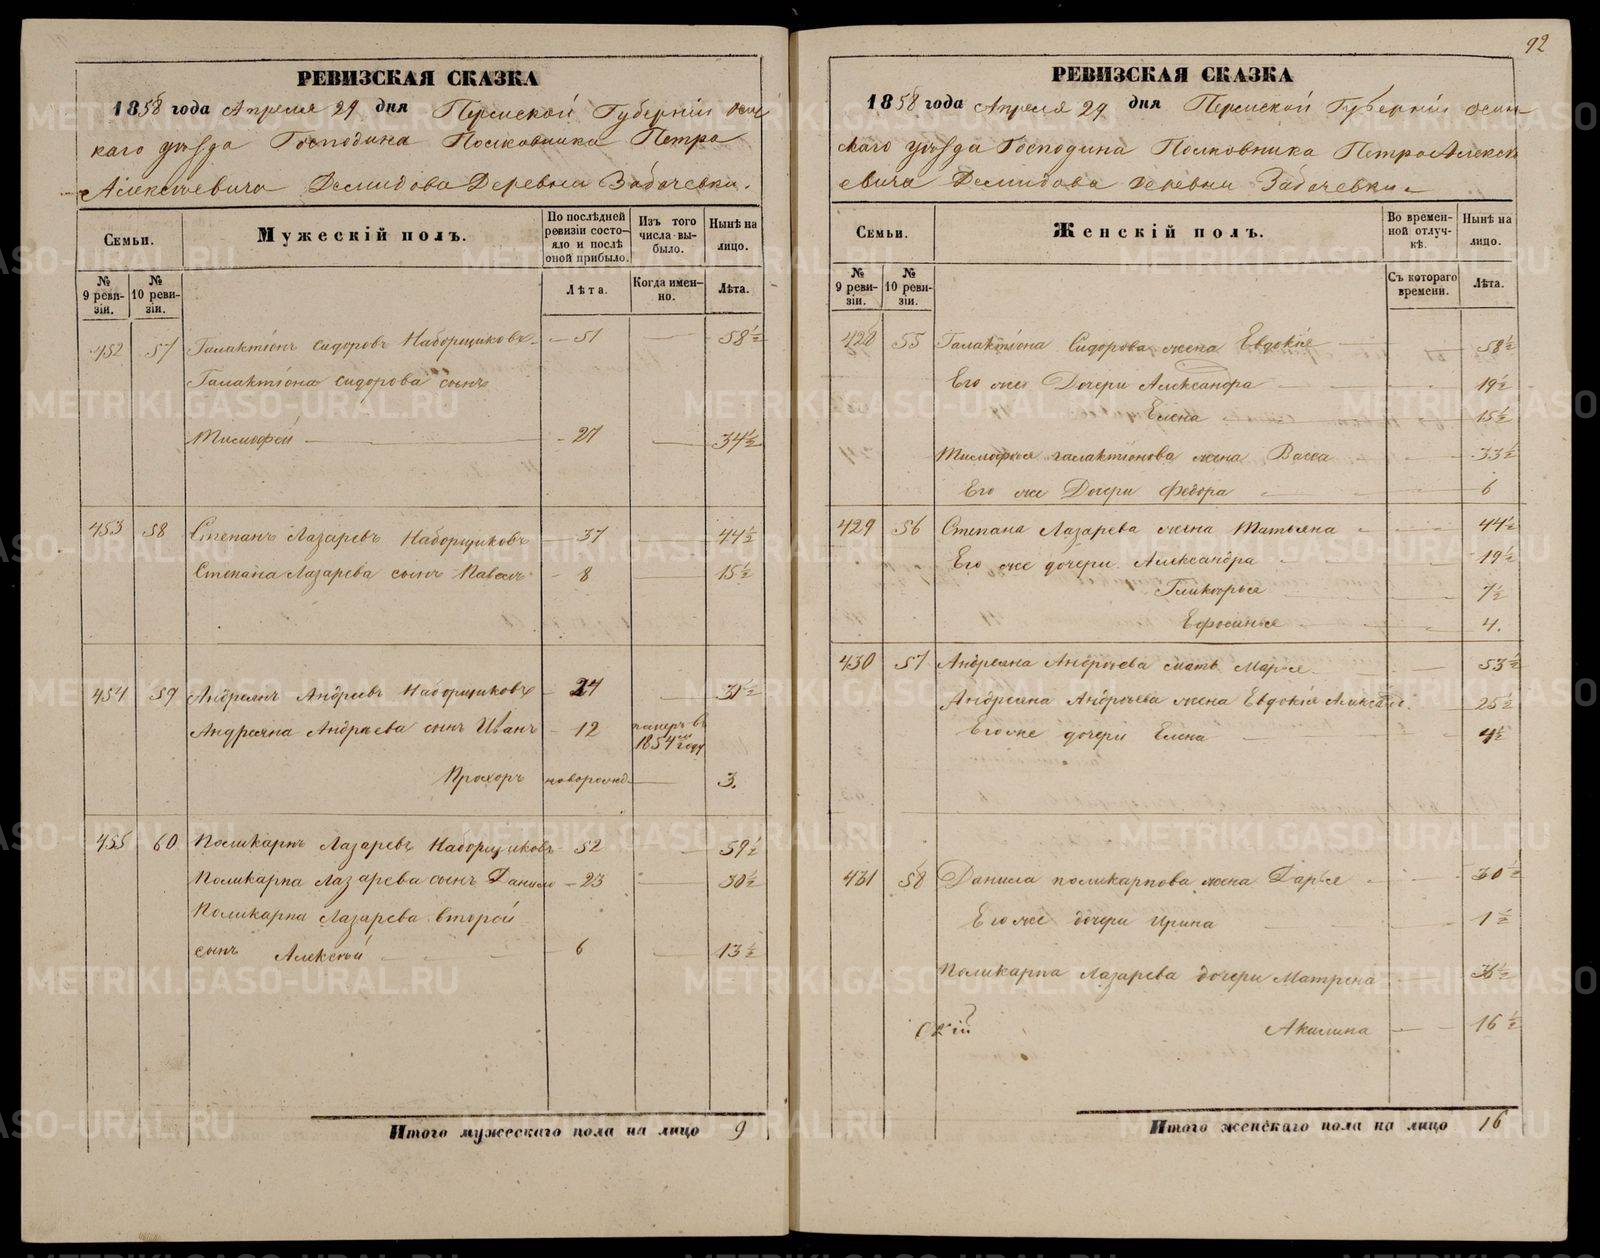 92
РЕВИЗСКАЯ СКАЗКА
1858 года Апреля 29 дня Пермской Губерніи Осин
каго уѣзда Господина Полковника Петра
Алексѣевича Демидова Деревни Забачевки.
Семьи.
Мужескій полъ.
По послѣдней ревизіи состояло и послѣ оной прибыло.
Изъ того числа выбыло.
Нынѣ на лицо.
№ 9 ревизіи.
№ 10 ревизіи.
Лѣта.
Когда именно.
Лѣта.
452 57 Галактіонъ Сидоровъ Наборщиковъ 51 58½
Галактіона Сидорова сынъ
Тимофей 27 34½
453 58 Степанъ Лазаревъ Наборщиковъ 37 44½
Степана Лазарева сынъ Павелъ 8 15½
454 59 Андреянъ Андреевъ Наборщиковъ 24 31½
Андреяна Андреева сынъ Иванъ 12 померъ въ 1854 году
Прохоръ новорожд. 3.
455 60 Поликарпъ Лазаревъ Наборщиковъ 52 59½
Поликарпа Лазарева сынъ Данило 23 30½
Поликарпа Лазарева второй
сынъ Алексѣй 6 13½
Итого мужескаго пола на лицо 9
РЕВИЗСКАЯ СКАЗКА
1858 года Апреля 29 дня Пермской Губерніи Осин
скаго уѣзда Господина Полковника Петра Алексѣ
евича Демидова Деревни Забачевки
Семьи.
Женскій полъ.
Во временной отлучкѣ.
Нынѣ на лицо.
№ 9 ревизіи.
№ 10 ревизіи.
Съ котораго времени.
Лѣта.
428 55 Галактіона Сидорова жена Евдокія 58½
Его же Дочери Александра 19½
Елена 15½
Тимофея Галактіонова жена Васса 33½
Его же Дочери Федора 6
429 56 Степана Лазарева жена Татьяна 44½
Его же дочери Александра 19½
Гликерья 7½
Ефросинья 4.
430 57 Андреяна Андреева мать Марья 53½
Андреяна Андреева жена Евдокія 25½
Его же дочери Елена 4½
431 58 Данила Поликарпова жена Дарья 30½
Его же дочери Ирина 1½
Поликарпа Лазарева дочери Матрена 36½
Акилина 16½
Итого женскаго пола на лицо 16
METRIKI.GASO-URAL.RU